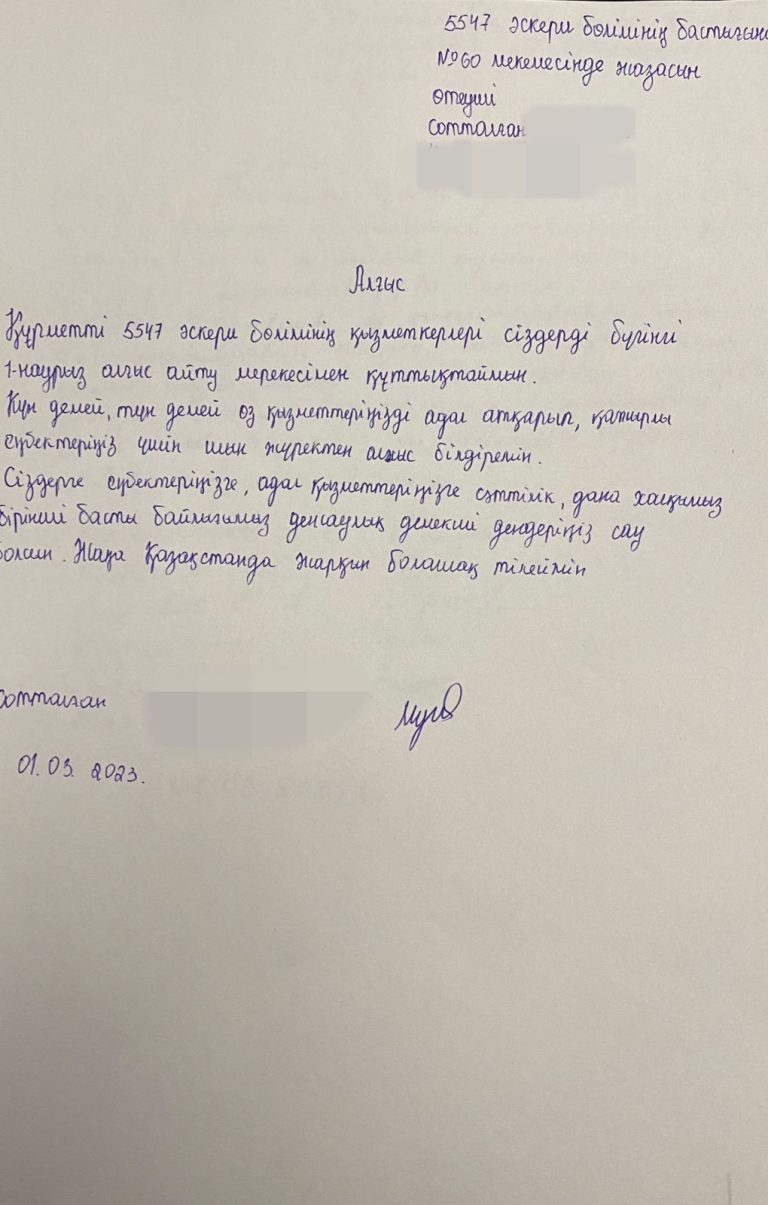 5547 әскери бөлімінің бастығына
№60 мекемесінде жазасын
өтеуші
Сотталған
Алғыс
Құрметті 5547 әскери бөлімінің қызметкерлері сіздерді бүгінгі
1-наурыз алғыс айту мерекесімен құттықтаймын.
Күн демей, түн демей өз қызметтеріңізді адал атқарып, қажырлы
еңбектеріңіз үшін шын жүректен алғыс білдіремін.
Сіздерге еңбектеріңізге, адал қызметтеріңізге сәттілік, дана халқымыз
бірінші басты байлығымыз денсаулық демекші дендеріңіз сау
болсын. Жаңа Қазақстанда жарқын болашақ тілеймін
Сотталған
01.03.2023.